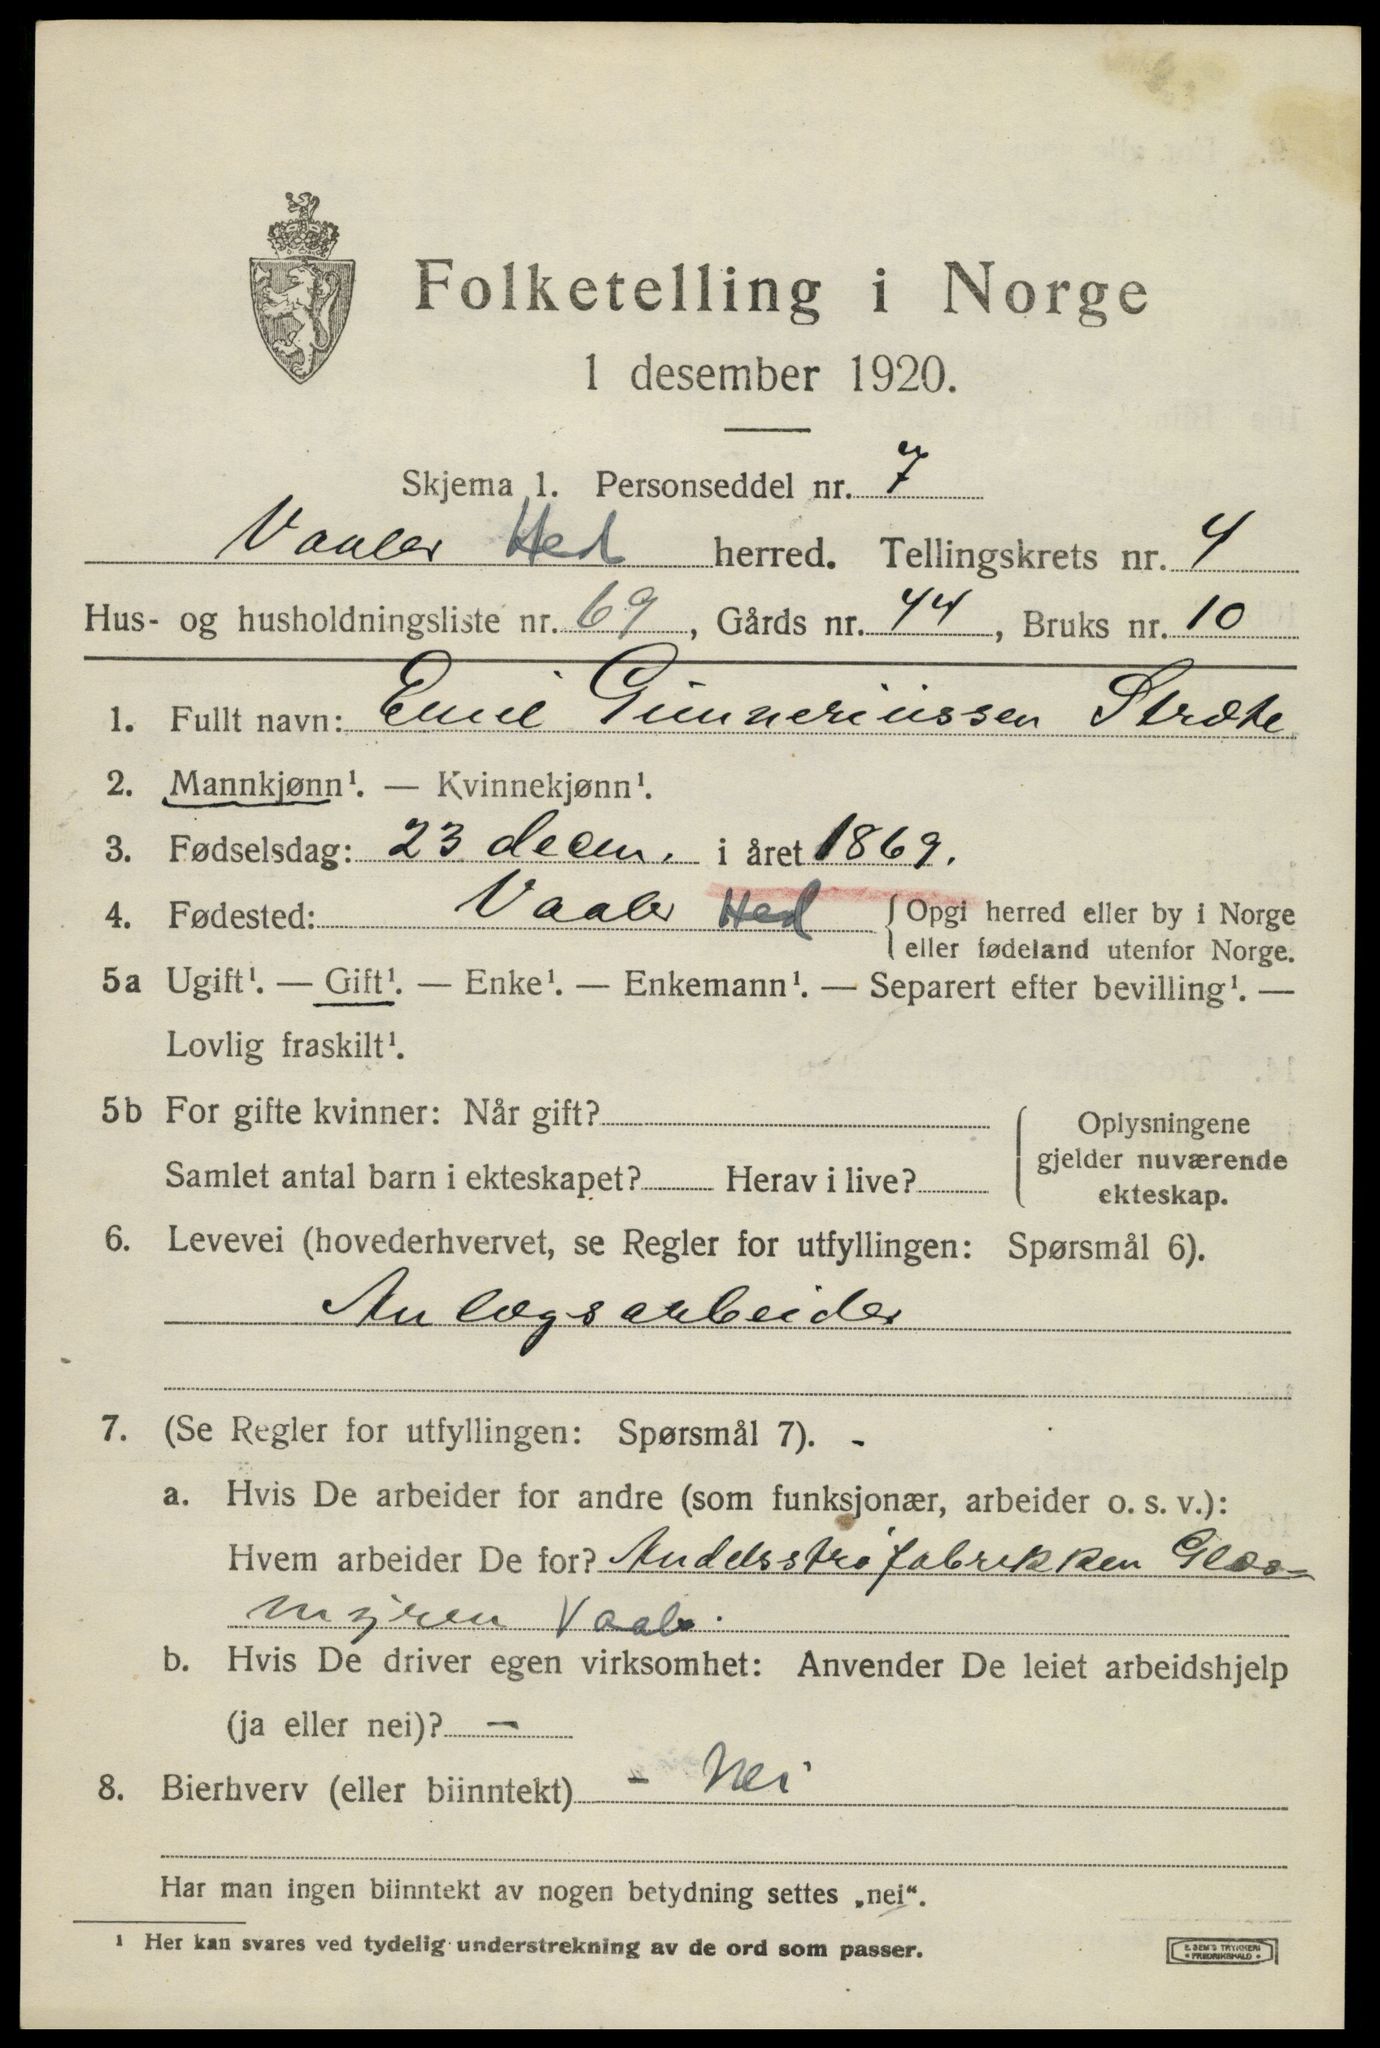 Folketelling i Norge
1 desember 1920.
Skjema 1. Personseddel nr. 7
Vaaler Hed herred. Tellingskrets nr. 4
Hus- og husholdningsliste nr. 69, Gårds nr. 44, Bruks nr. 10
1. Fullt navn: Emil Gunneriussen Stræte
2. Mannkjønn¹. — Kvinnekjønn¹.
3. Fødselsdag: 23 decem. i året 1869.
4. Fødested: Vaaler Hed {Opgi herred eller by i Norge
eller fødeland utenfor Norge.
5a Ugift¹. — Gift¹. — Enke¹. — Enkemann¹. — Separert efter bevilling¹. —
Lovlig fraskilt¹.
5b For gifte kvinner: Når gift?
Samlet antal barn i ekteskapet? Herav i live?
Oplysningene
gjelder nuværende
ekteskap.
6. Levevei (hovederhvervet, se Regler for utfyllingen: Spørsmål 6).
Anlægsarbeider
7. (Se Regler for utfyllingen: Spørsmål 7). -
a. Hvis De arbeider for andre (som funksjonær, arbeider o. s. v.):
Hvem arbeider De for? Andelsstrøfabrikken
myren Vaaler
b. Hvis De driver egen virksomhet: Anvender De leiet arbeidshjelp
(ja eller nei)? —
8. Bierhverv (eller biinntekt) - Nei
Har man ingen biinntekt av nogen betydning settes „nei“.
¹ Her kan svares ved tydelig understrekning av de ord som passer.
E. SEM'S TRYKKERI
• FREDRIKSHALD •